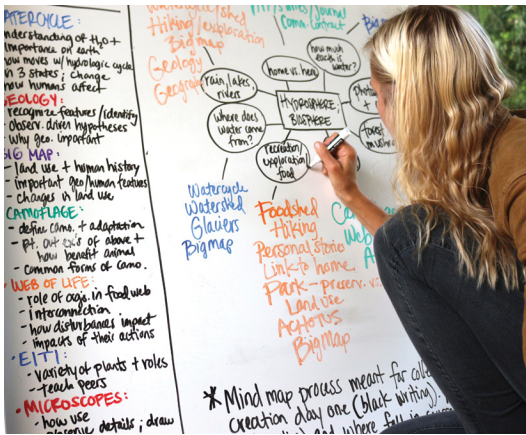 WATERCYCLE:
understanding of H₂O +
importance on earth
how moves w/ hydrologic cycle
in 3 states; change
how humans affect
GEOLOGY:
recognize features/identify
observ. driven hypotheses
why geo. important
BIG MAP:
- land use + human history
- important geo/human features
- changes in land use
CAMOFLAGE:
- define camo. + adaptation
- pt. out ex's of above +
how benefit animal
- common forms of camo.
- WEB OF LIFE:
- role of orgs. in food web
- interconnection
- how disturbances impact
- impacts of their actions
- EITI:
- variety of plants + roles
- teach peers
- MICROSCOPES:
- how use
observe details; draw
Watercycle/shed
Hiking/exploration
Big map
Geology
/journal
comm. contract
rain, lakes,
rivers
home vs. here
how much
earth is
water?
HYDROSPHERE:
BIOSPHERE
Where does
water come
from?
recreation
exploration
food
Forest
Watercycle
Watershed
Glaciers
Big map
Foodshed
Hiking
Personal stories
Link to home
Park - preserv. vs.
Land use
Big Map
* Mind map process meant for
creation day one (black writing).